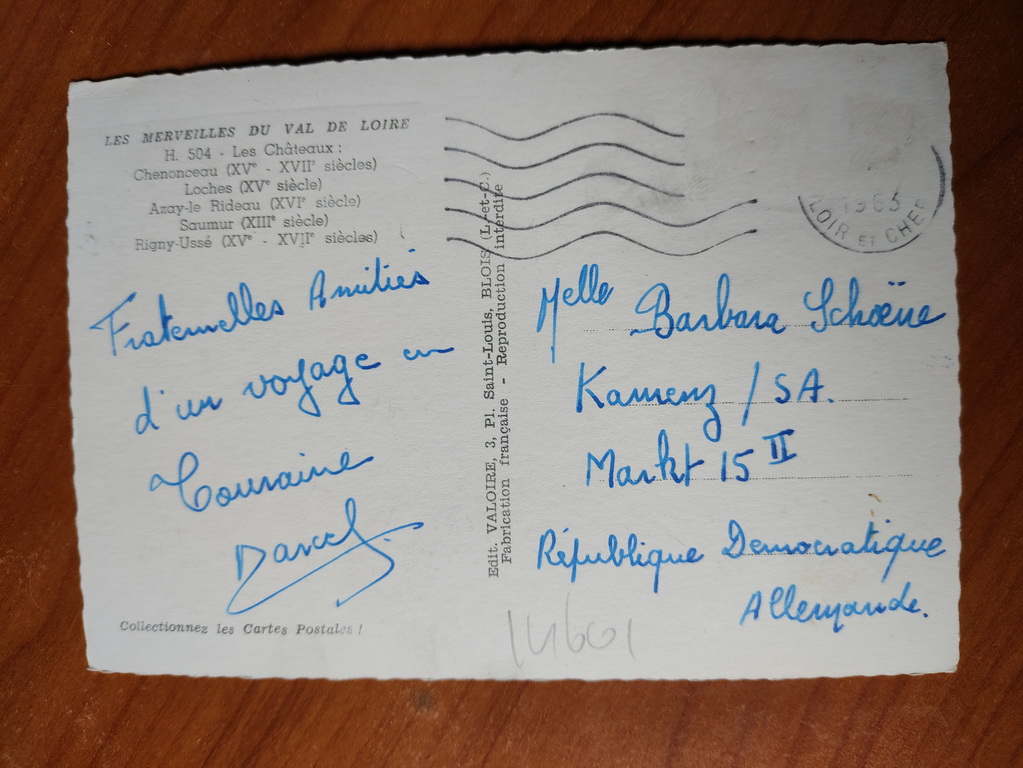 LES MERVEILLES DU VAL DE LOIRE
H. 504 - Les Châteaux :
Chenonceau (XVe - XVIIe siècles)
Loches (XVe siècle)
Azay-le Rideau (XVIe siècle)
Saumur (XIIIe siècle)
Rigny-Ussé (XVe - XVIIe siècles)
Fraternelles Amitiés
d'un voyage en
Touraine
Darcel
Collectionnez les Cartes Postales !
Edit. VALOIRE, 3, Pl. Saint-Louis, BLOIS (L.-et-C.)
Fabrication française - Reproduction interdite
1963
LOIR ET CHER
Melle Barbara Schoëne
Kamenz / SA.
Markt 15 II
République Democratique
Allemande.
14601